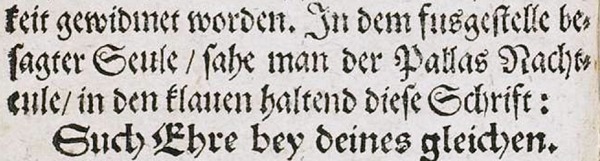 keit gewidmet worden. In dem fusgestelle be-
sagter Seule / sahe man der Pallas Nacht-
eule / in den klauen haltend diese Schrift :
Such Ehre bey deines gleichen.